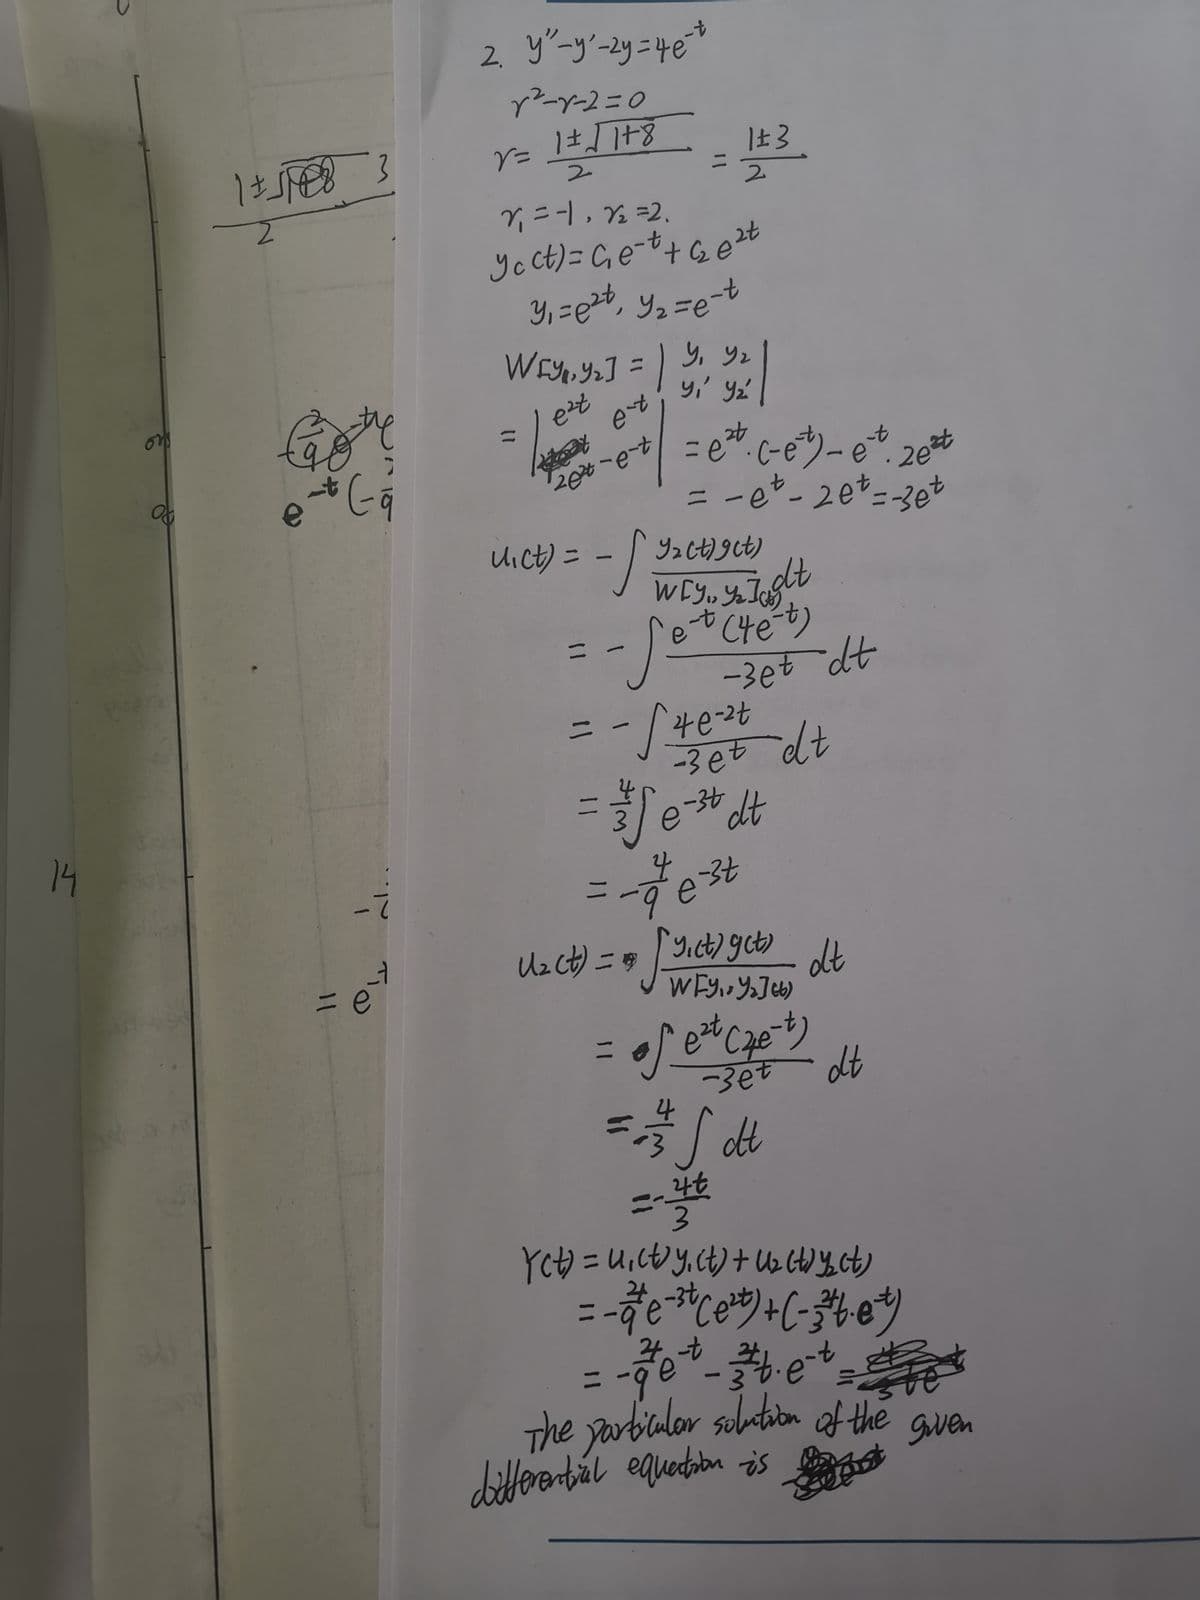 2. y''-y'-2y=4e^{-t}
r²-r-2=0
r= (1±√(1+8))/2 = (1±3)/2
r₁=-1, r₂=2.
y_c(t)=C₁e^{-t}+C₂e^{2t}
y₁=e^{2t}, y₂=e^{-t}
W[y₁,y₂] = | y₁ y₂ |
| y₁' y₂' |
= | e^{2t} e^{-t} |
| 2e^{2t} -e^{-t} | = e^{2t}·(-e^{-t})-e^{-t}·2e^{2t}
= -e^{t}-2e^{t}=-3e^{t}
u₁(t) = -∫ y₂(t)g(t)/W[y₁,y₂](t) dt
= -∫ e^{-t}(4e^{-t})/(-3e^{t}) dt
= -∫ 4e^{-2t}/(-3e^{t}) dt
= 4/3 ∫ e^{-3t} dt
= -4/9 e^{-3t}
u₂(t) = ∫ y₁(t)g(t)/W[y₁,y₂](t) dt
= ∫ e^{2t}(4e^{-t})/(-3e^{t}) dt
= 4/-3 ∫ dt
= -4t/3
Y(t) = u₁(t)y₁(t)+u₂(t)y₂(t)
= -4/9 e^{-3t}(e^{2t})+(-4/3 t·e^{-t})
= -4/9 e^{-t} - 4/3 t·e^{-t} =
The particular solution of the given
differential equation is
1±√1+8 3
2
14
e^{-t}(-
= e^{-t}